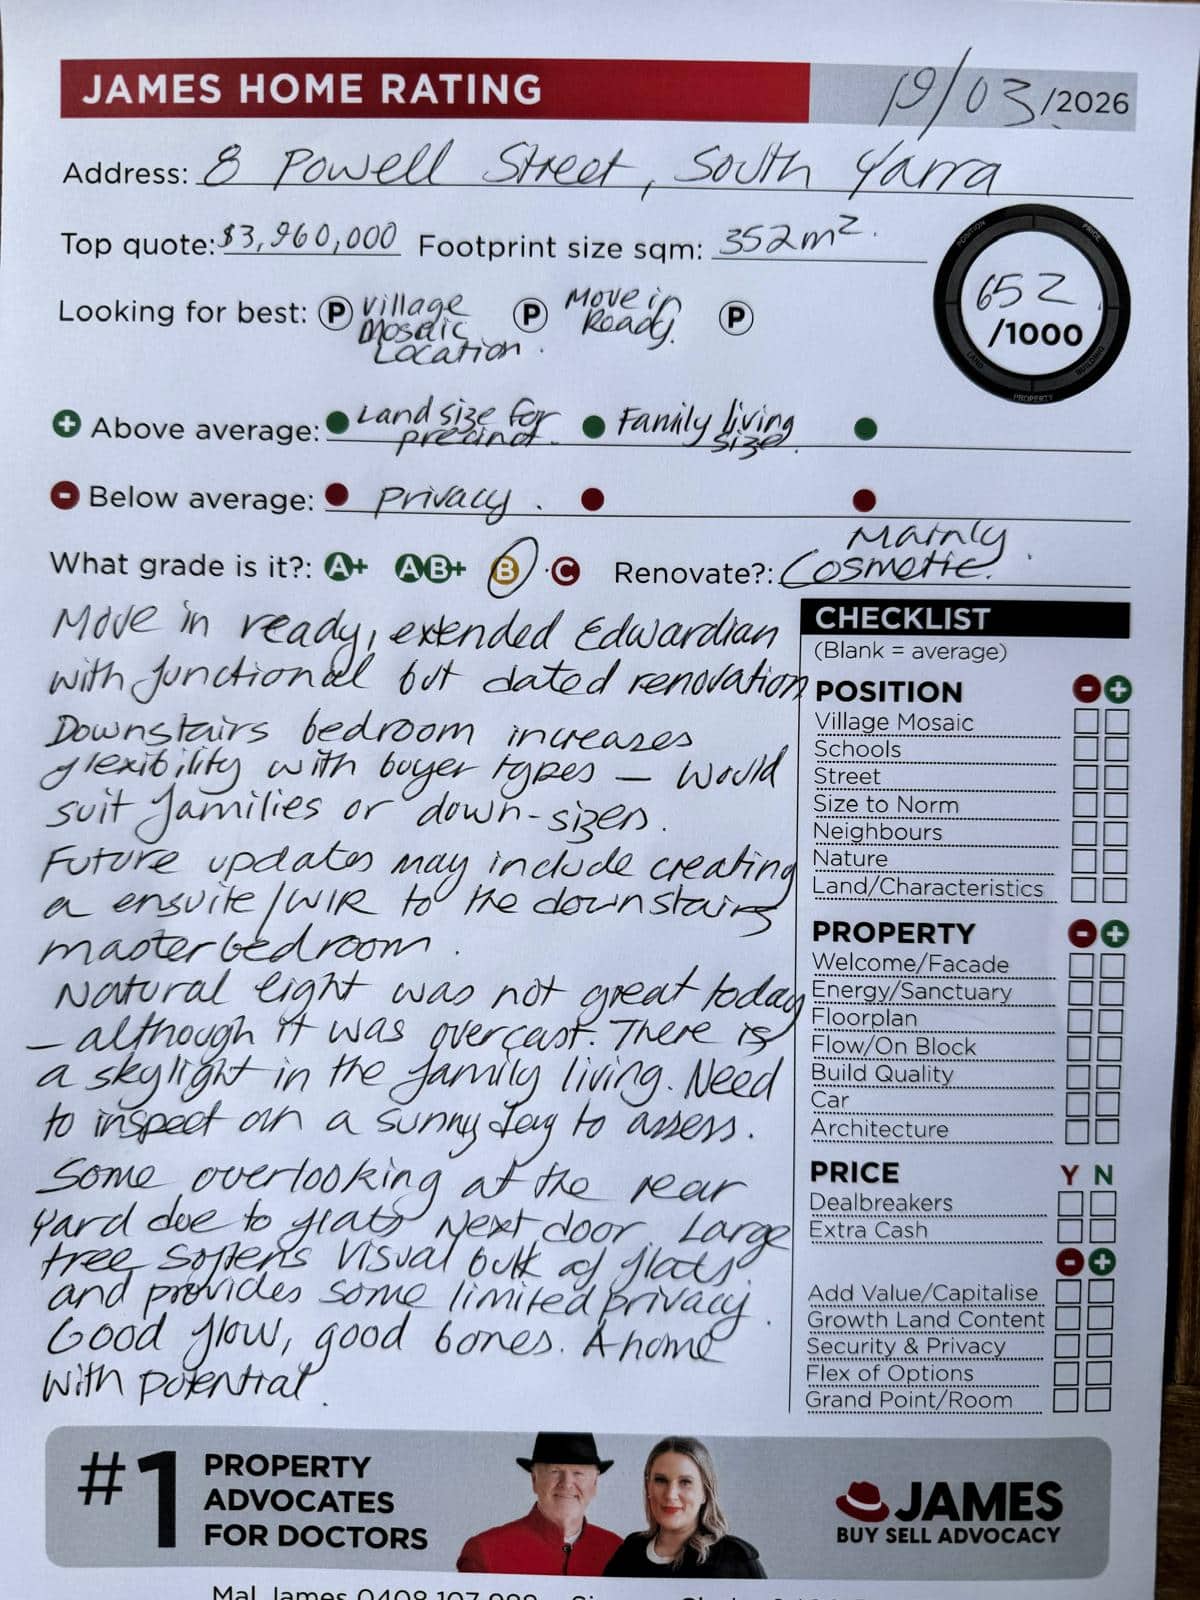 JAMES HOME RATING 19/03/2026
Address: 8 Powell Street, South Yarra
Top quote: $3,960,000 Footprint size sqm: 352m².
POSITION PRICE LAND BUILDING PROPERTY
652
/1000
Looking for best: P Village Mosaic Location. P Move in Ready. P
+ Above average: Land size for precinct. Family living size.
- Below average: Privacy.
What grade is it?: A+ AB+ B C Renovate?: Mainly Cosmetic.
Move in ready, extended Edwardian
with functional but dated renovation
Downstairs bedroom increases
flexibility with buyer types – would
suit families or down-sizers.
Future updates may include creating
a ensuite/WIR to the downstairs
master bedroom.
Natural light was not great today
– although it was overcast. There is
a skylight in the family living. Need
to inspect on a sunny day to assess.
Some overlooking at the rear
yard due to flats next door. Large
tree softens visual bulk of flats
and provides some limited privacy.
Good flow, good bones. A home
with potential.
CHECKLIST
(Blank = average)
POSITION - +
Village Mosaic
Schools
Street
Size to Norm
Neighbours
Nature
Land/Characteristics
PROPERTY - +
Welcome/Facade
Energy/Sanctuary
Floorplan
Flow/On Block
Build Quality
Car
Architecture
PRICE Y N
Dealbreakers
Extra Cash
- +
Add Value/Capitalise
Growth Land Content
Security & Privacy
Flex of Options
Grand Point/Room
#1 PROPERTY
ADVOCATES
FOR DOCTORS
JAMES
BUY SELL ADVOCACY
Mal James 0408 107 988